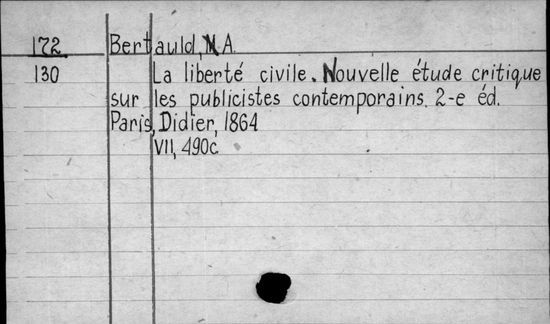 172 Bertauld, A.
130 La liberté civile. Nouvelle étude critique
sur les publicistes contemporains. 2-e éd.
Paris, Didier, 1864
VII, 490c.